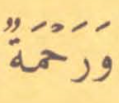 وَرَحْمَةً